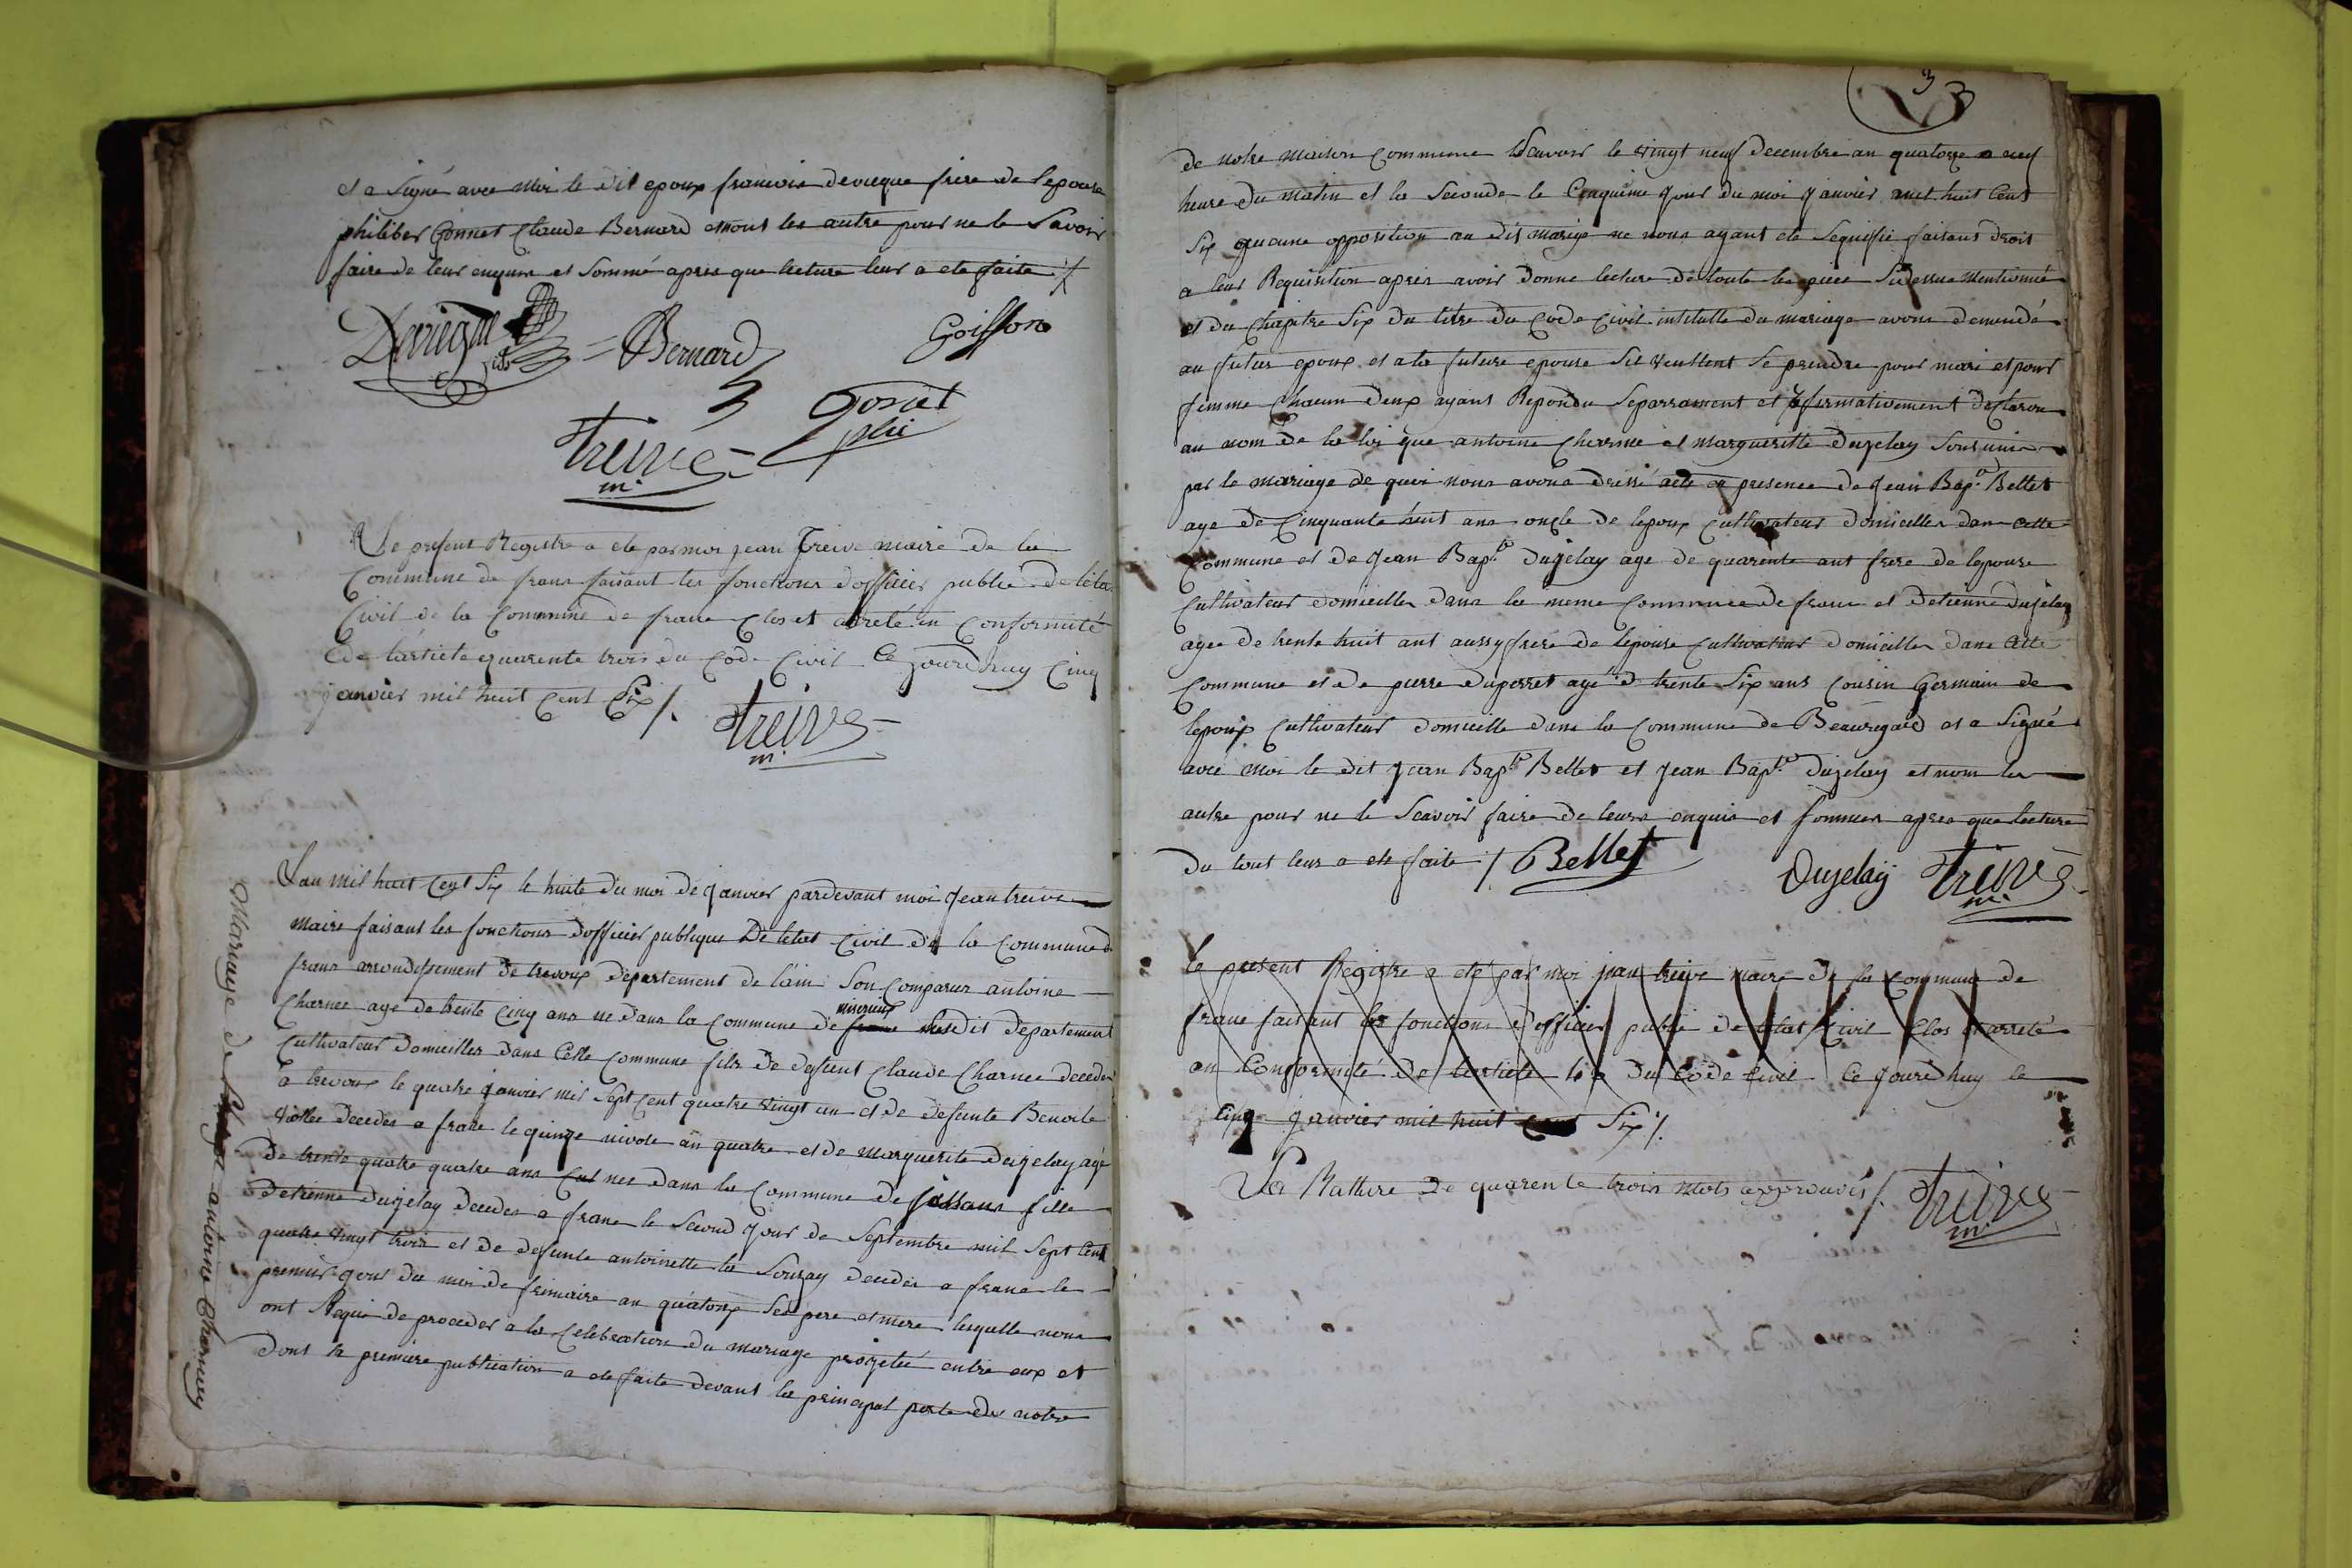 et a signé avec moi le dit epoux francois devieque frere de lepouse
philiber Gonnet Claude Bernard et nous les autre pour ne le Savoir
faire de leur enquis et Sommé apres que lecture leur a ete faite
Bernard
Goiffon
Gonet
phi
Treive
m.
Le present Registre a ete par moi jean Treive maire de la
Commune de frans faisant les fonctions dofficier public de leta
Civil de la Commune de frans Clos et arreté en Conformité
de larticle quarente trois du Code Civil Ce jourdhuy Cinq
janvier mil huit Cent Six /.
Treive
m.
Lan mil huit Cent Six le huite du moi de janvier pardevant moi jean treive
maire faisant les fonctions dofficier publique De letat Civil de la Commune de
frans arrondissement de trevoux departement de lain Son Comparus antoine
Charnee age de trente Cinq ans ne dans la Commune de frans miserieux susdit departement
Cultivateur domicillés dans Cette Commune fils de defunt Claude Charnee decedé
a trevoux le quatre janvier mil Sept Cent quatre vingt un et de defunte Benoite
decedes a frans le quinze nivose an quatre et de Marguerite Dujelay agé
de trente quatre quatre ans Cul nee dans la Commune de fille
detienne Dujelay decedes a frans le Second jour de Septembre mil Sept Cent
quatre vingt trois et de defunte antoinette la Souzay decedes a frans le
premier jour du moi de frimaire an quatorze Ses pere et mere lesquelle nous
ont Requis de proceder a la Celebration du mariage projetté entre eux et
dont la premiere publication a ete faite devant la principal porte de notre
Mariage de antoine Charnay
3
de notre maison Commune Scavoir le vingt neuf decembre an quatorze a neuf
heure du matin et la Seconde le Cinquieme jour du moi janvier mil huit Cent
Six aucune opposition au dit mariage ne nous ayant ete Signifié faisant droit
a leur Requisition apres avoir donne lecture de toute les piece Sidessus Mentionné
et du Chapitre Six du titre du Code Civil intitulle du mariage avons demendé
au futur epoux et a la future epouse Sil veullent Se prendre pour mari et pour
femme Chacun deux ayant Repondu Separrament et afirmativement declarons
au nom de la loi que antoine Charnee et margueritte Dujelay Sont unis
par le mariage de quoi nous avons dressé acte en presence de jean Bap.te Bellet
age de Cinquante huit ans oncle de lepoux Cultivateur domicilles dans Cette
Commune et de jean Bap.te Dujelay age de quarente ant frere de lepouse
Cultivateur domicilles dans la meme Commune de frans et detienne Dujelay
agee de trente huit ant aussy frere de lepouse Cultivateur domicilles dans Cette
Commune et de pierre Duperret agé de trente Six ans Cousin Germain de
lepoux Cultivateur domicille dans la Commune de Beauregard et a Signé
avec moi le dit jean Bap.te Bellet et jean Bapt.te Dujelay et nom les
autre pour ne le Scavoir faire de leurs enquis et Sommes apres que lecture
du tout leur a ete faite /.
Bellet
Dujelay
Treive
m.
Le present Registre a eté par moi jean treive maire de la Commune de
frans faisant les fonctions d'officier public de letat Civil Clos et arreté
en Conformité de larticle 43 du Code Civil Ce jourdhuy le
Cinq janvier mil huit Cent Six /.
La Rature de quarente trois Mots approuvés /.
Treive
m.